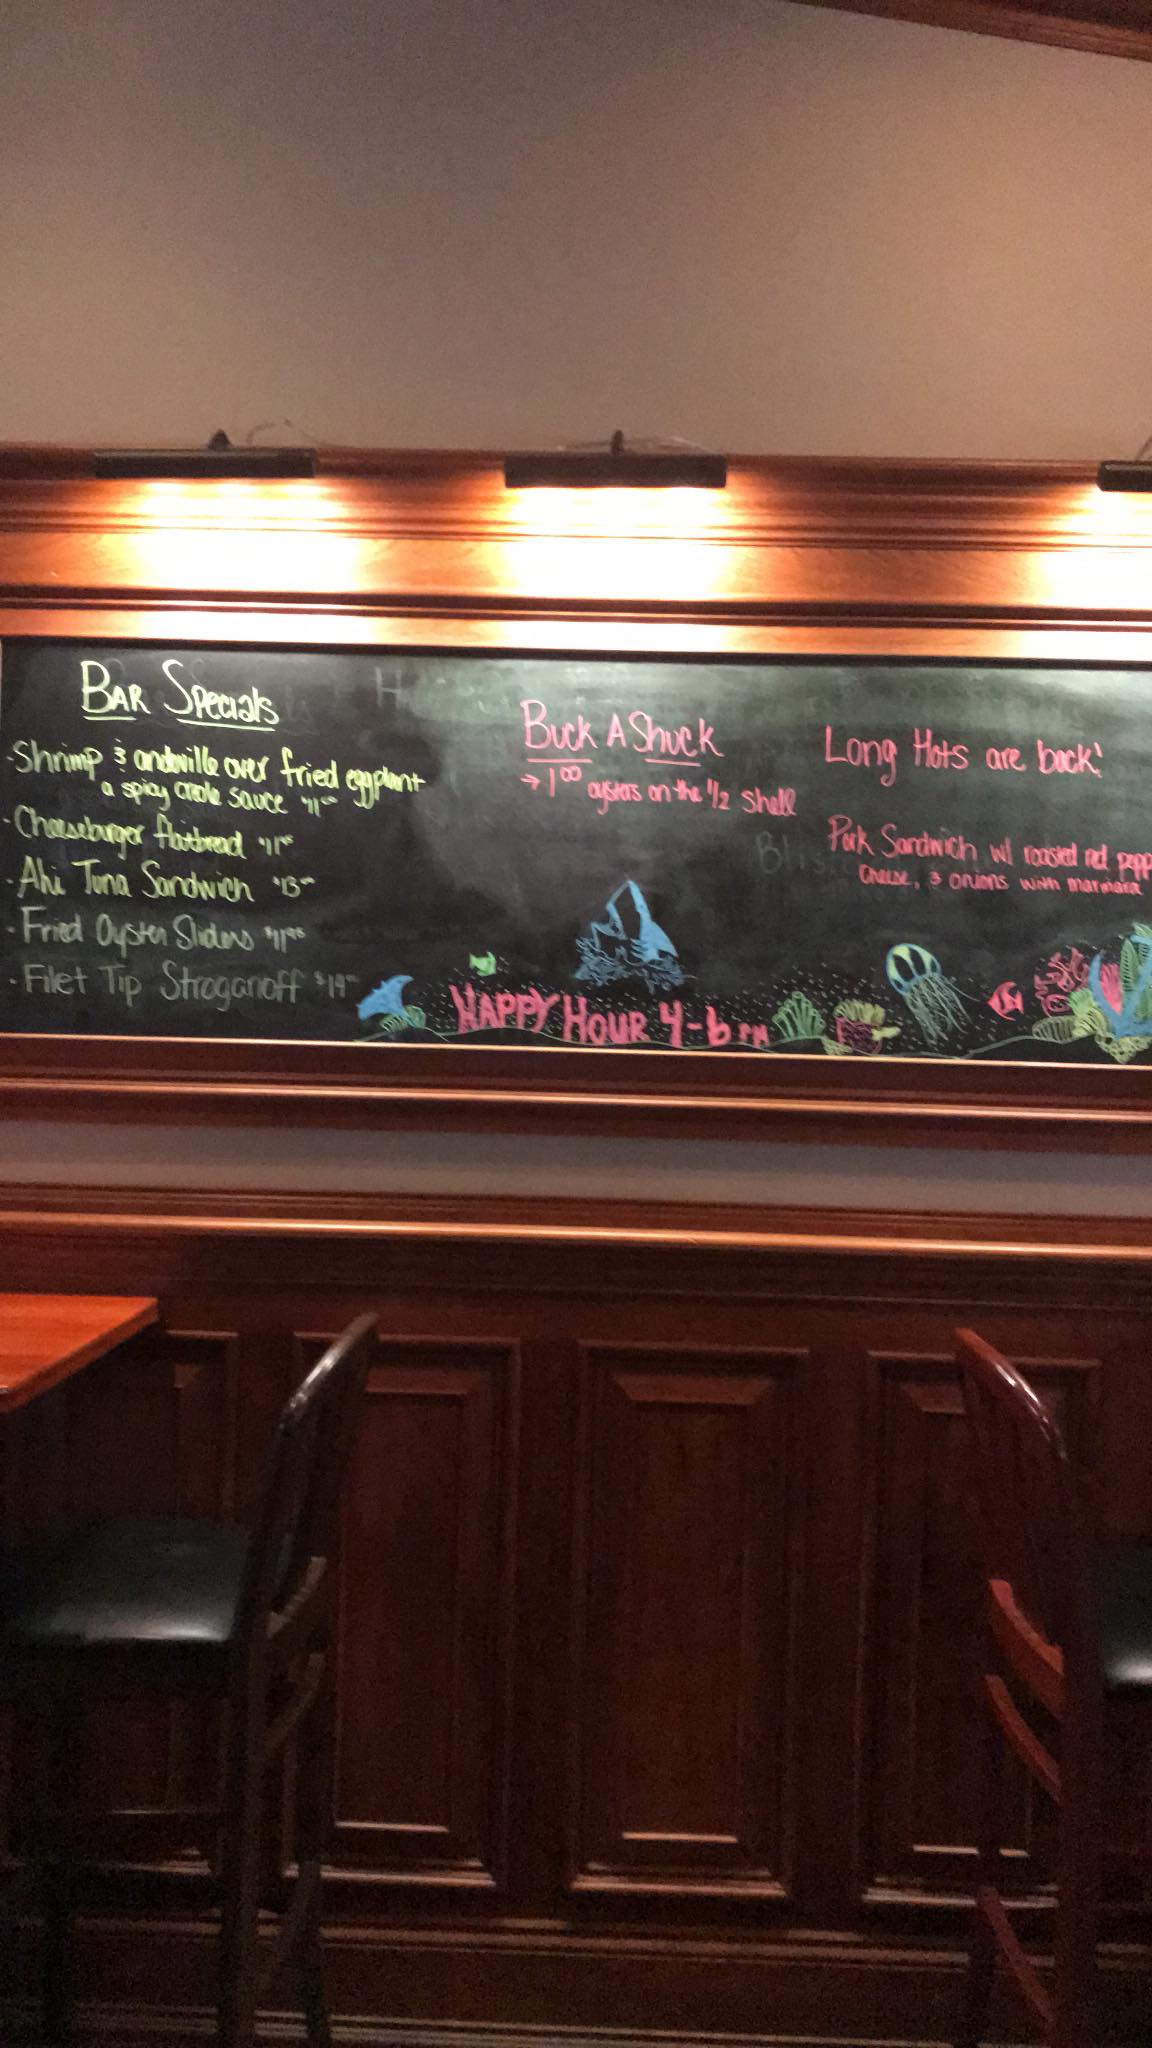 Bar Specials
- Shrimp & andoville over fried eggplant
a spicy creole sauce
- Cheeseburger flatbread
- Ahi Tuna Sandwich
- Fried Oyster Sliders $11⁹⁵
- Filet Tip Stroganoff
Buck A Shuck
→ 1⁰⁰ oysters on the 1/2 shell
Long Hots are back!
Pork Sandwich w/ roasted red pepp
Cheese, & onions with marinara
HAPPY HOUR 4-6 PM